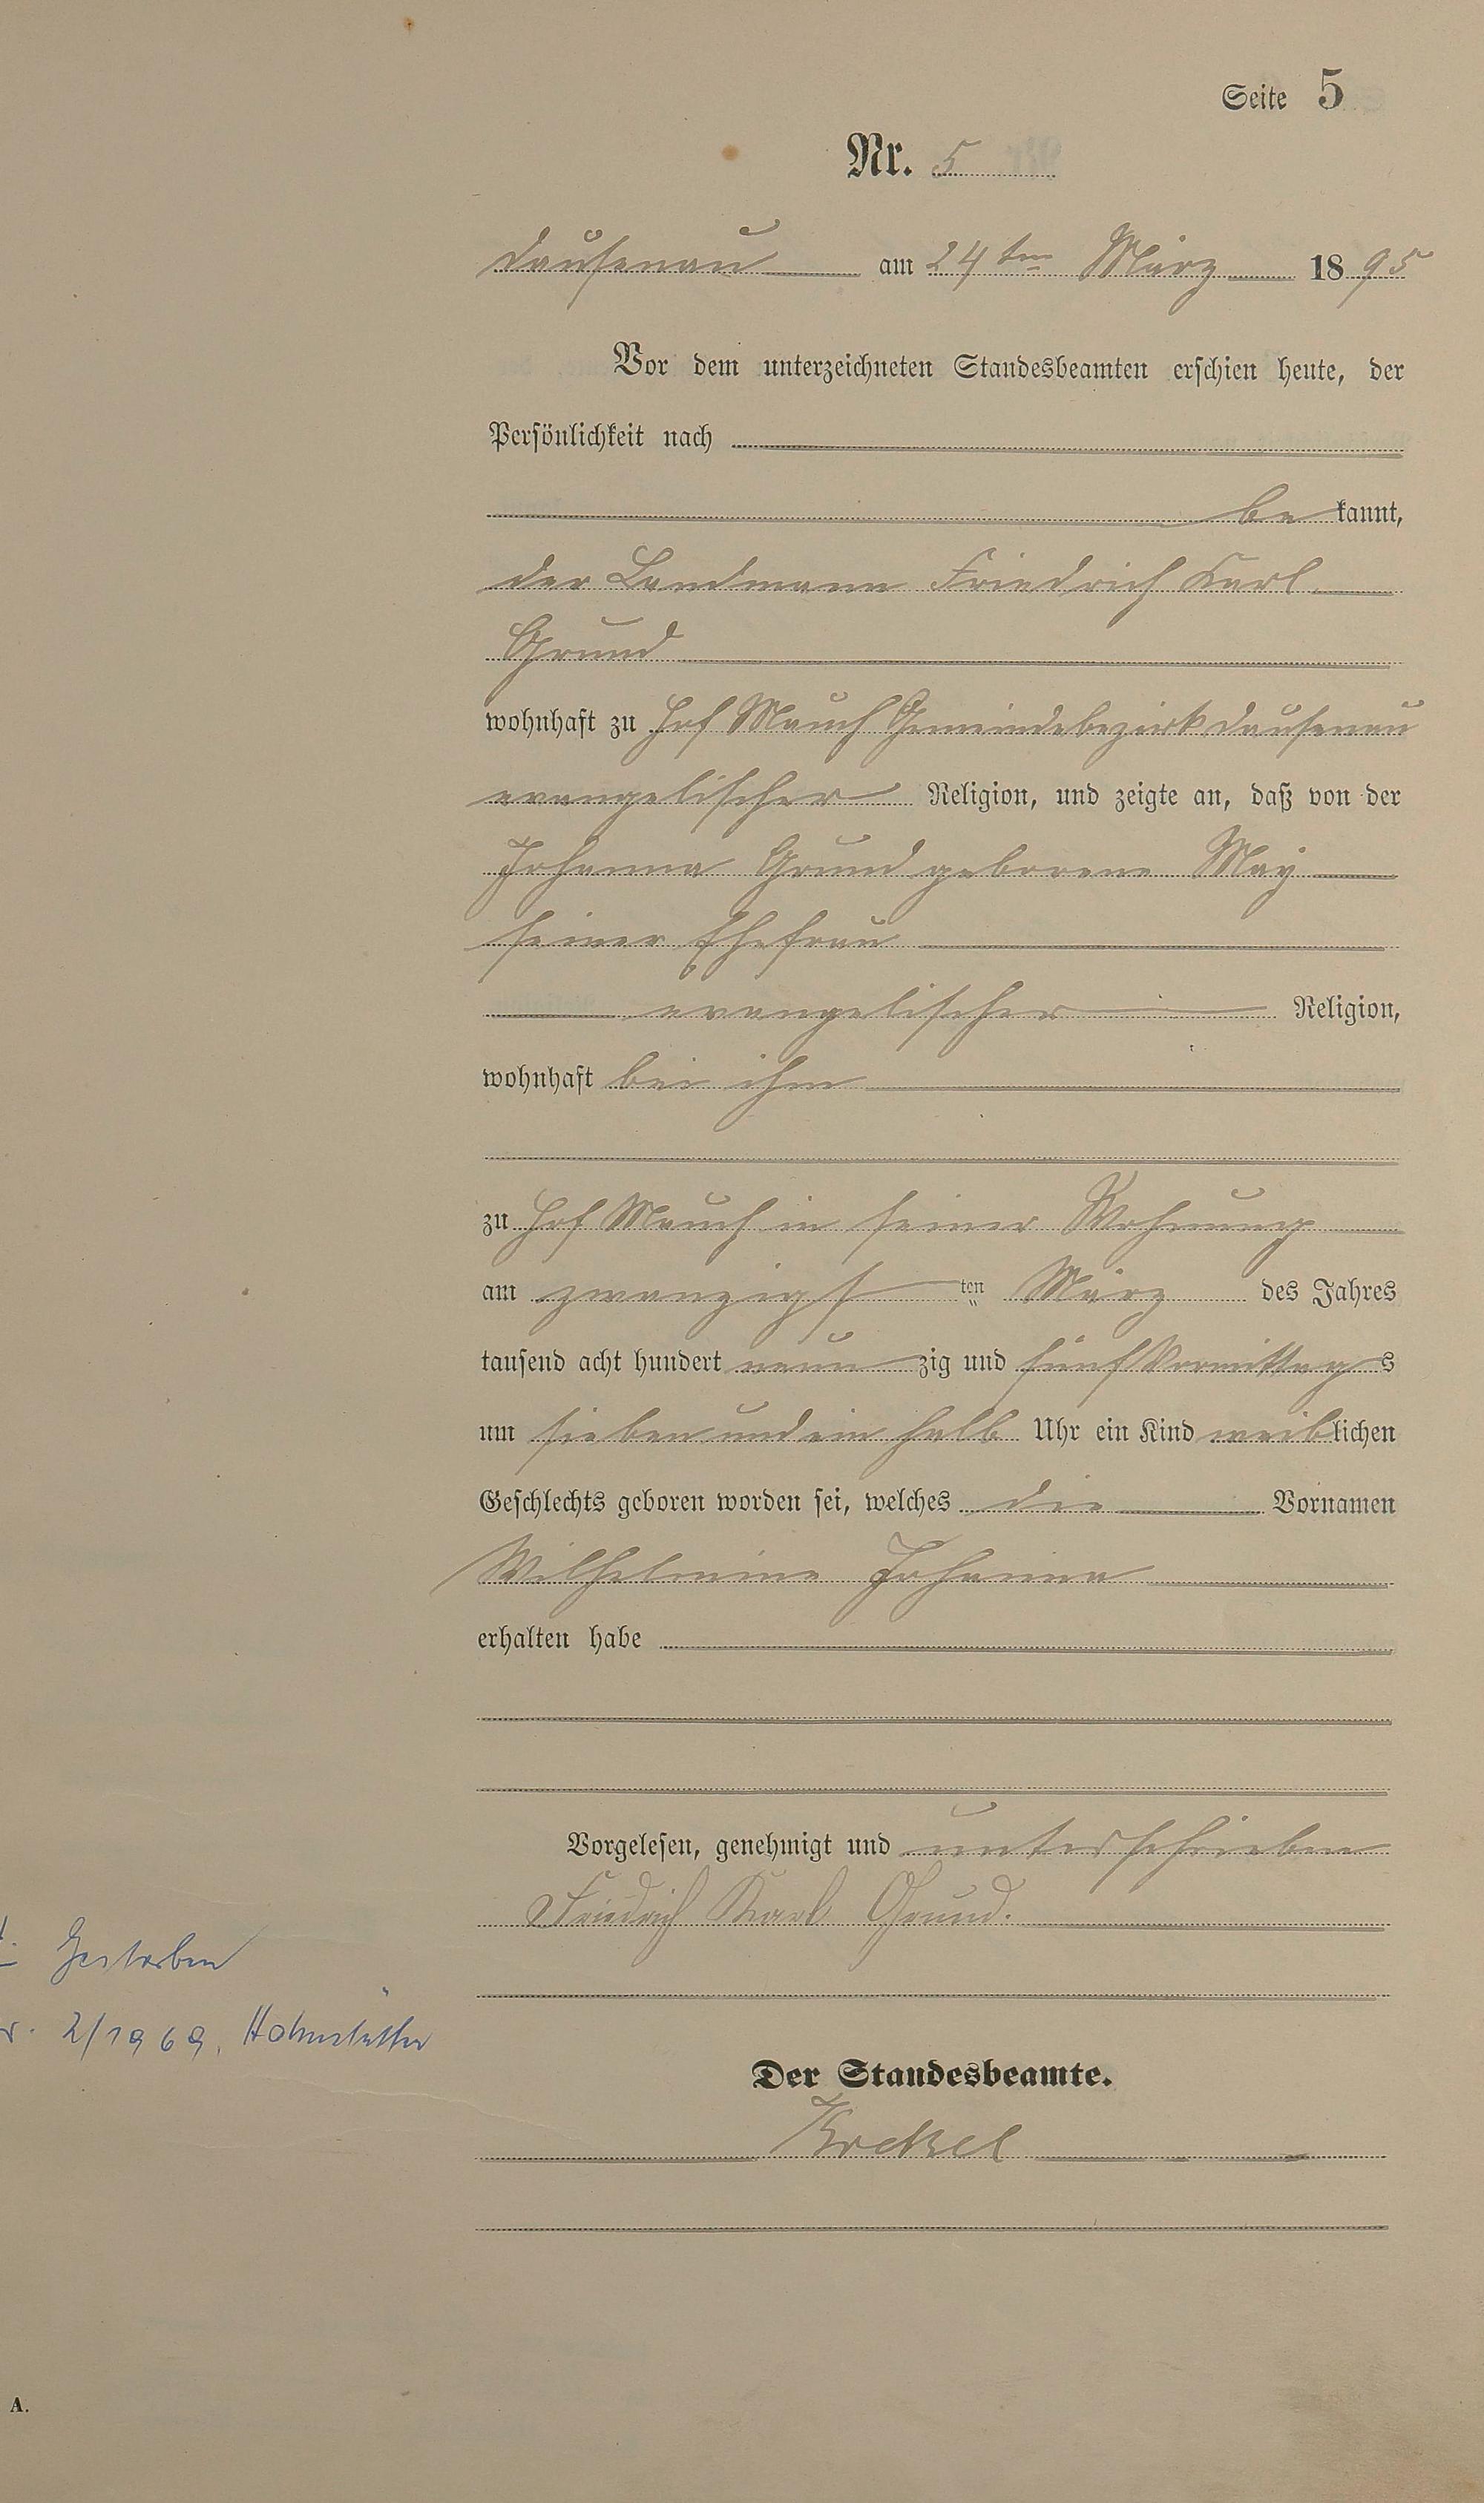 Seite 5
Nr. 5
Dausenau am 24ten März 1895
Vor dem unterzeichneten Standesbeamten erschien heute, der
Persönlichkeit nach
be kannt,
der Landmann Friedrich Karl
Grund
wohnhaft zu Hof Mauch Gemeindebezirk Dausenau
evangelischer Religion, und zeigte an, daß von der
Johanna Grund geborene May
seiner Ehefrau
evangelischer Religion,
wohnhaft bei ihm
zu Hof Mauch in seiner Wohnung
am zwanzigst ten März des Jahres
tausend acht hundert neun zig und fünf Vormittag s
um sieben und ein halb Uhr ein Kind weiblichen
Geschlechts geboren worden sei, welches die Vornamen
Wilhelmine Johanna
erhalten habe
Vorgelesen, genehmigt und unterschrieben
Friedrich Karl Grund.
Gestorben
2/1969,
Der Standesbeamte.
A.